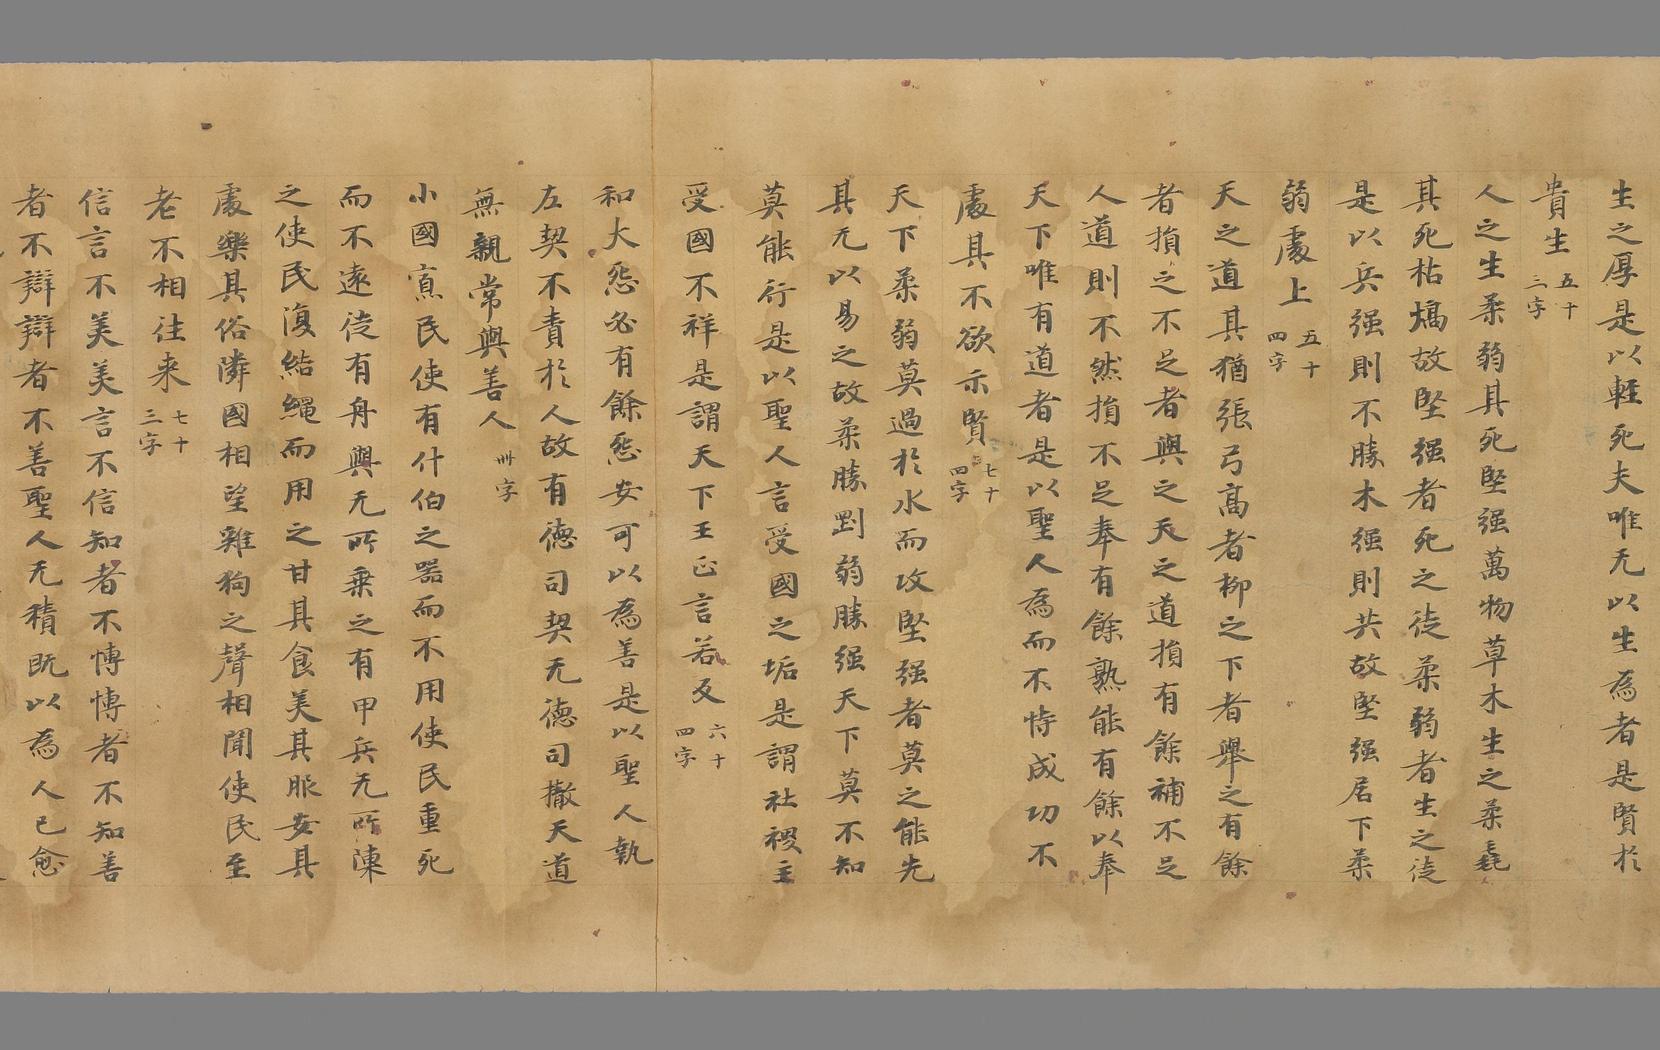 生之厚是以輕死夫唯无以生為者是賢於
貴生五十三字
人之生柔弱其死堅强萬物草木生之柔毳
其死枯熇故堅强者死之徒柔弱者生之徒
是以兵强則不勝木强則共故堅强居下柔
弱處上五十四字
天之道其猶張弓高者抑之下者舉之有餘
者損之不足者與之天之道損有餘補不足
人道則不然損不足奉有餘熟能有餘以奉
天下唯有道者是以聖人為而不恃成功不
處其不欲示賢七十四字
天下柔弱莫過於水而攻堅强者莫之能先
其无以易之故柔勝剛弱勝强天下莫不知
莫能行是以聖人言受國之垢是謂社稷主
受國不祥是謂天下王正言若反六十四字
和大怨必有餘怨安可以為善是以聖人執
左契不責於人故有德司契无德司撤天道
無親常與善人卌字
小國寡民使有什伯之器而不用使民重死
而不遠徙有舟轝无所乗之有甲兵无所陳
之使民復結繩而用之甘其食美其服安其
處樂其俗隣國相望雞狗之聲相聞使民至
老不相往来七十三字
信言不美美言不信知者不愽愽者不知善
者不辯辯者不善聖人无積既以為人已愈